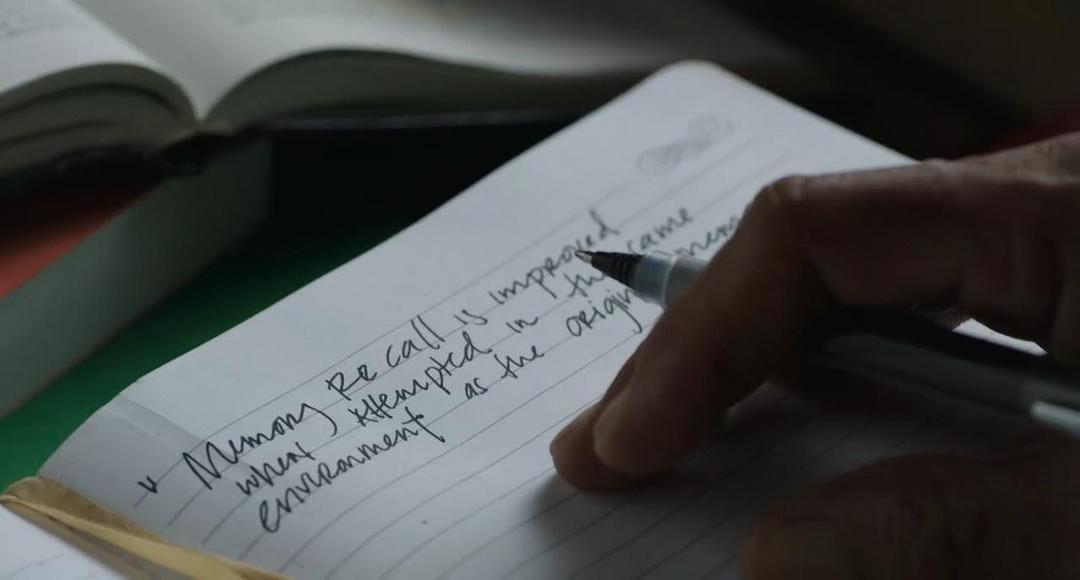 v Memory Recall is improved
when attempted in the same
environment as the original mem